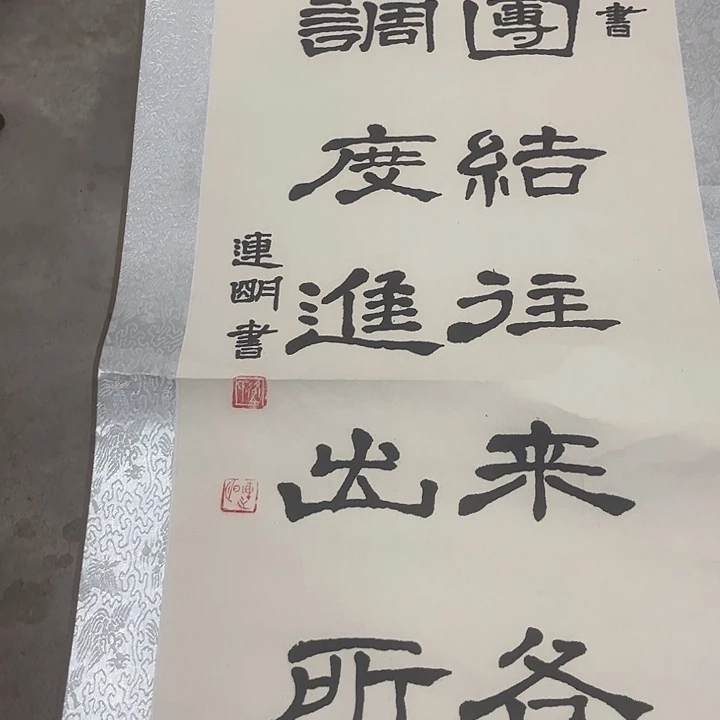 書
團結往来各
調度進出所
連明書